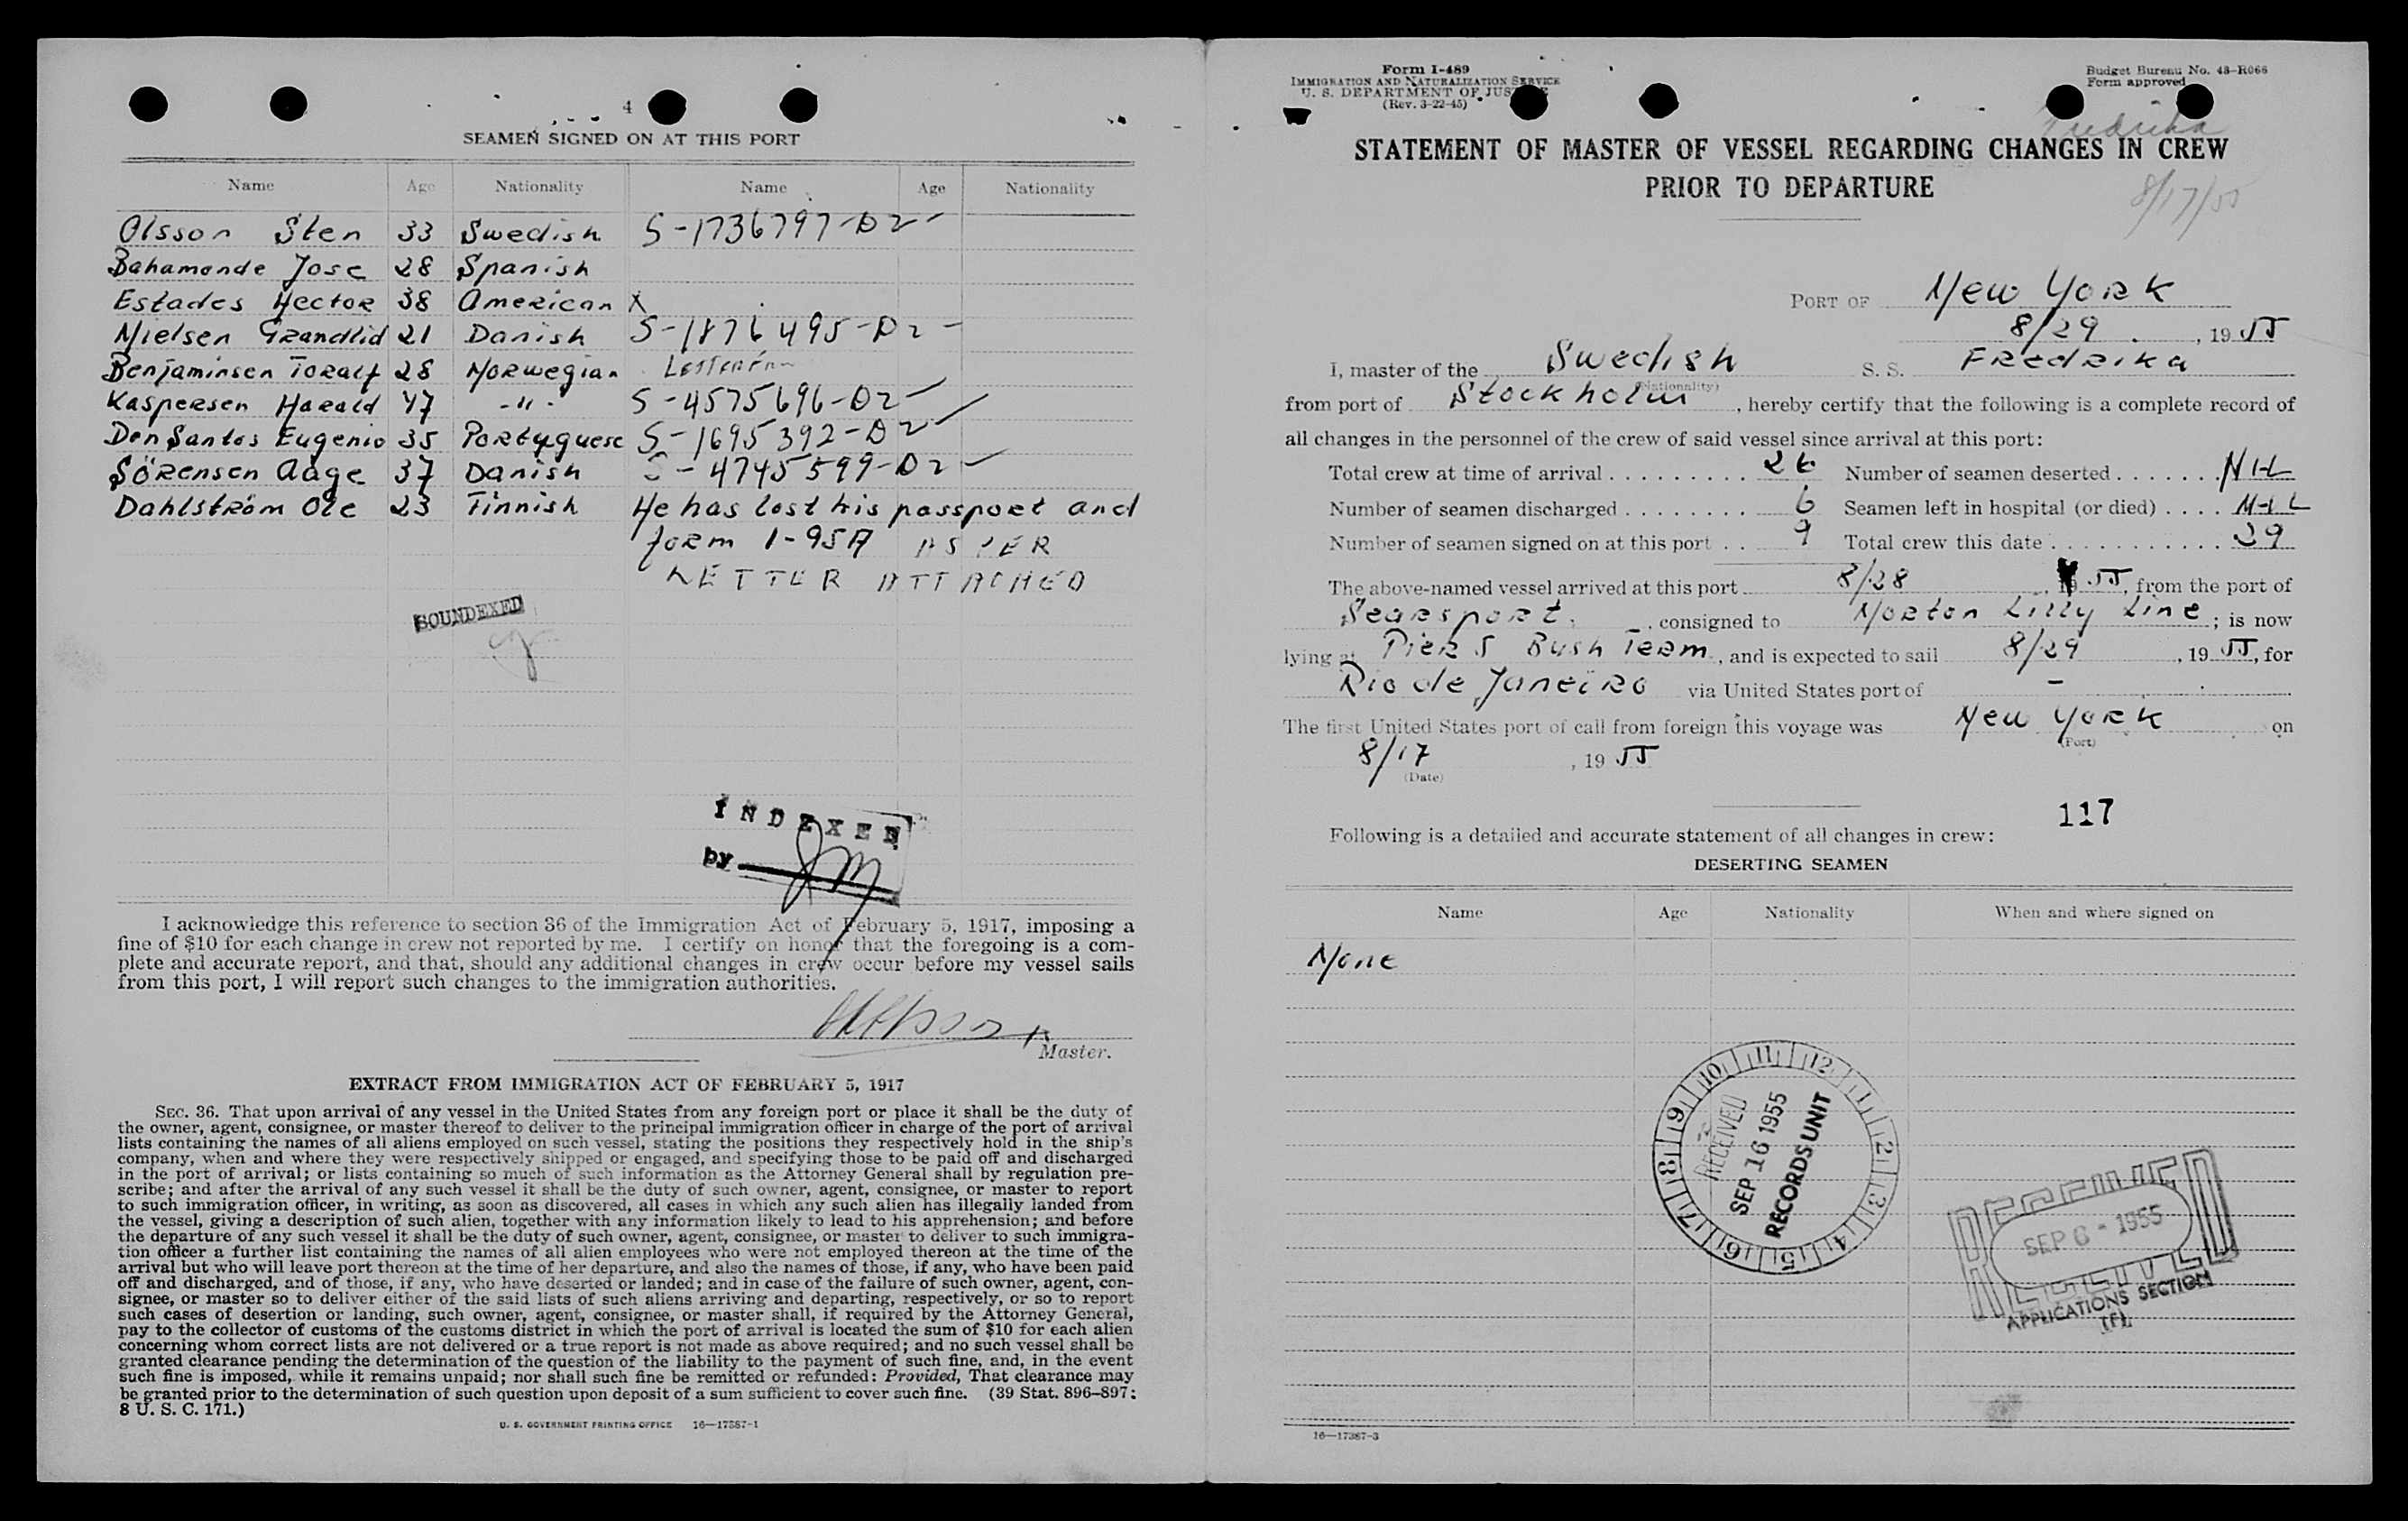 4
SEAMEN SIGNED ON AT THIS PORT
Name Age Nationality Name Age Nationality
Olsson Sten 33 Swedish S-1736797-D2
Bahamonde Jose 28 Spanish
Estades Hector 38 American X
Nielsen Grandlid 21 Danish S-1876495-D2
Benjaminsen Toralf 28 Norwegian
Kaspersen Harald 47 -"- S-4575696-D2
Don Santos Eugenio 35 Portuguese S-1695392-D2
Sörensen Aage 37 Danish S-4745599-D2
Dahlström Ole 23 Finnish He has lost his passport and
form I-95A AS PER
LETTER ATTACHED
SOUNDEXED
INDEXED
by JM
I acknowledge this reference to section 36 of the Immigration Act of February 5, 1917, imposing a
fine of $10 for each change in crew not reported by me. I certify on honor that the foregoing is a com-
plete and accurate report, and that, should any additional changes in crew occur before my vessel sails
from this port, I will report such changes to the immigration authorities.
Master.
EXTRACT FROM IMMIGRATION ACT OF FEBRUARY 5, 1917
SEC. 36. That upon arrival of any vessel in the United States from any foreign port or place it shall be the duty of
the owner, agent, consignee, or master thereof to deliver to the principal immigration officer in charge of the port of arrival
lists containing the names of all aliens employed on such vessel, stating the positions they respectively hold in the ship's
company, when and where they were respectively shipped or engaged, and specifying those to be paid off and discharged
in the port of arrival; or lists containing so much of such information as the Attorney General shall by regulation pre-
scribe; and after the arrival of any such vessel it shall be the duty of such owner, agent, consignee, or master to report
to such immigration officer, in writing, as soon as discovered, all cases in which any such alien has illegally landed from
the vessel, giving a description of such alien, together with any information likely to lead to his apprehension; and before
the departure of any such vessel it shall be the duty of such owner, agent, consignee, or master to deliver to such immigra-
tion officer a further list containing the names of all alien employees who were not employed thereon at the time of the
arrival but who will leave port thereon at the time of her departure, and also the names of those, if any, who have been paid
off and discharged, and of those, if any, who have deserted or landed; and in case of the failure of such owner, agent, con-
signee, or master so to deliver either of the said lists of such aliens arriving and departing, respectively, or so to report
such cases of desertion or landing, such owner, agent, consignee, or master shall, if required by the Attorney General,
pay to the collector of customs of the customs district in which the port of arrival is located the sum of $10 for each alien
concerning whom correct lists are not delivered or a true report is not made as above required; and no such vessel shall be
granted clearance pending the determination of the question of the liability to the payment of such fine, and, in the event
such fine is imposed, while it remains unpaid; nor shall such fine be remitted or refunded: Provided, That clearance may
be granted prior to the determination of such question upon deposit of a sum sufficient to cover such fine. (39 Stat. 896-897;
8 U. S. C. 171.)
U. S. GOVERNMENT PRINTING OFFICE 16—17387-1
Form I-489
IMMIGRATION AND NATURALIZATION SERVICE
U. S. DEPARTMENT OF JUSTICE
(Rev. 3-22-45)
Budget Bureau No. 43-R066
Form approved
Fredrika
STATEMENT OF MASTER OF VESSEL REGARDING CHANGES IN CREW
PRIOR TO DEPARTURE
8/17/55
PORT OF New York
8/29, 19 55
I, master of the Swedish S. S. Fredrika
(Nationality)
from port of Stockholm, hereby certify that the following is a complete record of
all changes in the personnel of the crew of said vessel since arrival at this port:
Total crew at time of arrival 26 Number of seamen deserted NIL
Number of seamen discharged 6 Seamen left in hospital (or died) NIL
Number of seamen signed on at this port 9 Total crew this date 29
The above-named vessel arrived at this port 8/28, 19 55, from the port of
Searsport, consigned to Norton Lilly Line; is now
lying at Pier 5 Bush Term., and is expected to sail 8/29, 19 55, for
Rio de Janeiro via United States port of -
The first United States port of call from foreign this voyage was New York on
(Port)
8/17, 19 55
(Date)
117
Following is a detailed and accurate statement of all changes in crew:
DESERTING SEAMEN
Name Age Nationality When and where signed on
None
9 10 11 12 1 2 3 4 5 6 7 8
RECEIVED
SEP 16 1955
RECORDS UNIT
RECEIVED
SEP 6 - 1955
RECEIVED
APPLICATIONS SECTION
(F)
16—17387-3